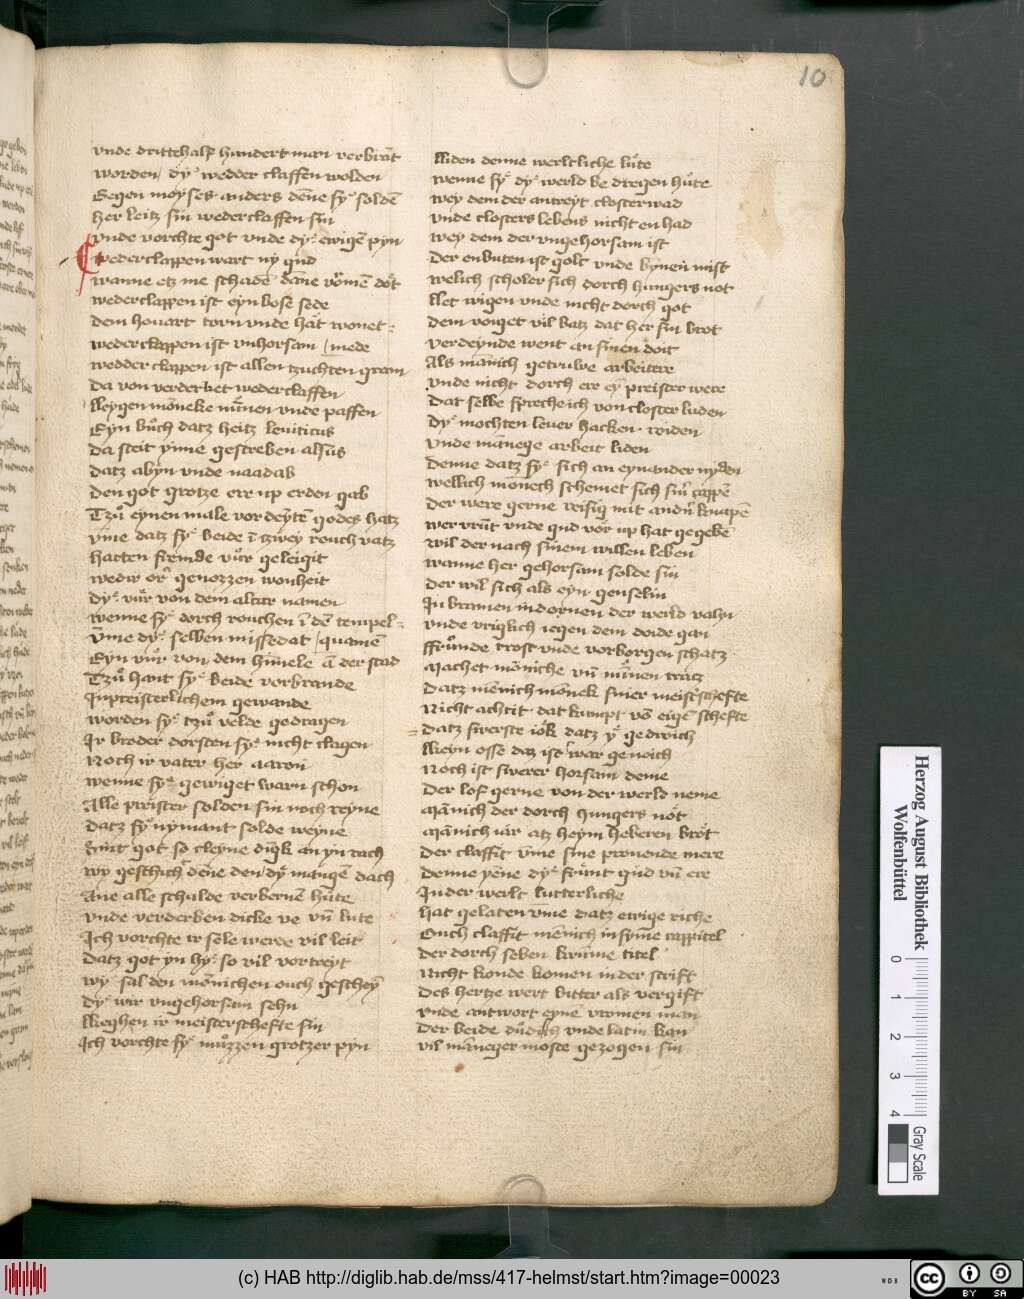 10
vnde drittehalf hundert man verbrāt
worden / dy wedder claffen wolden
Gegen moyses anders dēne sy soldē
her leitz sin wederclaffen sin
vnde vorchte got vnde dy ewigē pyn
wederclappen wart ny gůd
wanne etz me schadē dāne vromē dot
wederclappen ist eyn bose sede
dem houart torn vnde hat wonet
wederclappen ist vnhorsam / mede
wedder clappen ist allen tzuchten gram
Da von verderbet wederclaffen
Leygen moneke nūnen vnde paffen
Eyn bůch datz heitz leuiticus
Da steit ynne gescreben alsus
datz abyn vnde naadab
Den got grotze ere up erden gab
Tzů eynen male vor deyte godes hatz
yme datz sy beide ī tzwey rouch vatz
hatten fremde vůr geleigit
wedir er genozzen wonheit
dy vůr von dem altar namen
wenne sy dorch rouchen ī dē tempel
vme dy selben missedat / quamē
Eyn vůr von dem himele ā der stad
Tzů hant sy beide vorbrande
In preisterlichem gewande
worden sy tzů velde gedragen
Ir broder dorsten sy nicht clagen
Noch ir vater her aaron
wenne sy gewiget warn schon
Alle preister solden sin noch reyne
Datz sy nymant solde weyne
Sint got so cleyne dīgk an yn rach
wy geschich dene den dy mangē dach
Ane alle schulde verbernē hute
vnde verderben dicke ve vn̄ lute
Ich vorchte ir sele werde vil leit
Datz got yn hy so vil vortreyt
wy sal den monichen ouch geschey
dy wir vngehorsam sehn
Kieghen ir meisterschefte sin
Ich vorchte sy muzzen grotzer pyn
Liden denne werltliche lute
wenne sy dy werld be dregen hute
wey dem der antreyt closterwad
vnde closters lebens nicht en had
wey dem der vngehorsam ist
Der enbuten ist golt vnde bynen mist
welich scholer sich dorch hungers not
Let wigen vnde nicht dorch got
Dem voiget vil batz dat her sin brot
verdeynde went an sinen doit
Als manich getruwe arbeitere
vnde nicht dorch ere eyn preister were
Dat selbe spreche ich von closter luden
Dy mochten leuer hacken. roiden
vnde manege arbeit liden
Denne datz sy sich an eynander nyden
wellich monech schemet sich sinr cappē
Der were gerne reisig mit andn knapē
wer vrunt vnde gud vor up hat gegebē
wil der nach sinem willen leben
wanne her gehorsam solde sin
der wil sich als eyn genselin
In bramen in dornen der werld vahn
vnde vriglich iegen dem doide gan
Frunde trost vnde vorborgen schatz
Machet moniche vn̄ nūnen tratz
Datz menich monek siner meisterschefte
Nicht achtit. dat kumpt vō eigē schefte
Datz swerste iok datz y gedwich
Keyn osse daz ist war genoich
Noch ist swerer horsam deme
Der lof gerne von der werld neme
Manich der dorch hungers not
Manich iar atz heym heberen brot
Der claffit vme sine prouende mere
Denne yene dy frunt gud vn̄ ere
In der werlt lutterliche
hat gelaten vme datz ewige riche
Ouch claffit menich in syme cappitel
der dorch seben krume titel
Nicht konde komen in der scrift
Des hertze wert bitter als vergift
vnde antwort eyne vromen man
Der beide dudisch vnde latin kan
vil maneger moste gezogen sin
Herzog August Bibliothek
Wolfenbüttel
0 1 2 3 4
Gray Scale
(c) HAB http://diglib.hab.de/mss/417-helmst/start.htm?image=00023
WDB
cc
BY SA